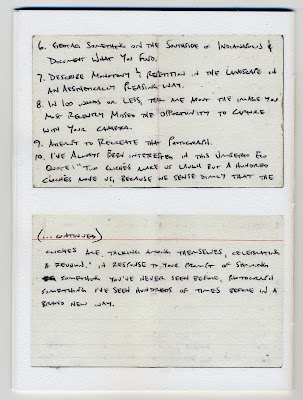 6. GEOTAG SOMETHING ON THE SOUTHSIDE OF INDIANAPOLIS &
DOCUMENT WHAT YOU FIND.
7. DESCRIBE MONOTONY & REPETITION IN THE LANDSCAPE IN
AN AESTHETICALLY PLEASING WAY.
8. IN 100 WORDS OR LESS, TELL ME ABOUT THE IMAGE YOU
MOST RECENTLY MISSED THE OPPORTUNITY TO CAPTURE
WITH YOUR CAMERA.
9. ATTEMPT TO RECREATE THAT PHOTOGRAPH.
10. I'VE ALWAYS BEEN INTERESTED IN THIS UMBERTO ECO
QUOTE: "TWO CLICHÉS MAKE US LAUGH BUT A HUNDRED
CLICHÉS MOVE US, BECAUSE WE SENSE DIMLY THAT THE
(...CONTINUED)
CLICHÉS ARE TALKING AMONG THEMSELVES, CELEBRATING
A REUNION." IN RESPONSE TO YOUR PROMPT OF SHOWING
SOMETHING YOU'VE NEVER SEEN BEFORE, PHOTOGRAPH
SOMETHING I'VE SEEN HUNDREDS OF TIMES BEFORE IN A
BRAND NEW WAY.